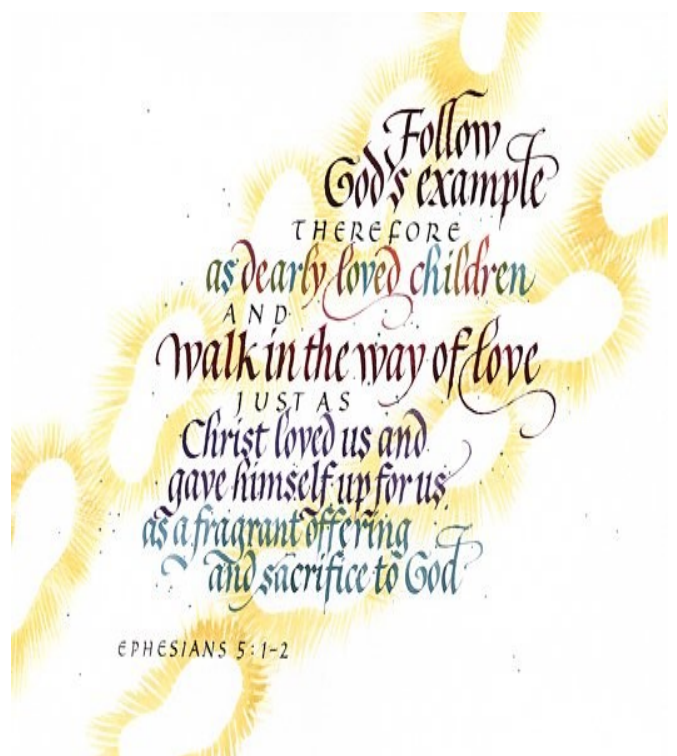 Follow
God's example
THEREFORE
as dearly loved children
AND
walk in the way of love
JUST AS
Christ loved us and
gave himself up for us
as a fragrant offering
and sacrifice to God
EPHESIANS 5:1-2